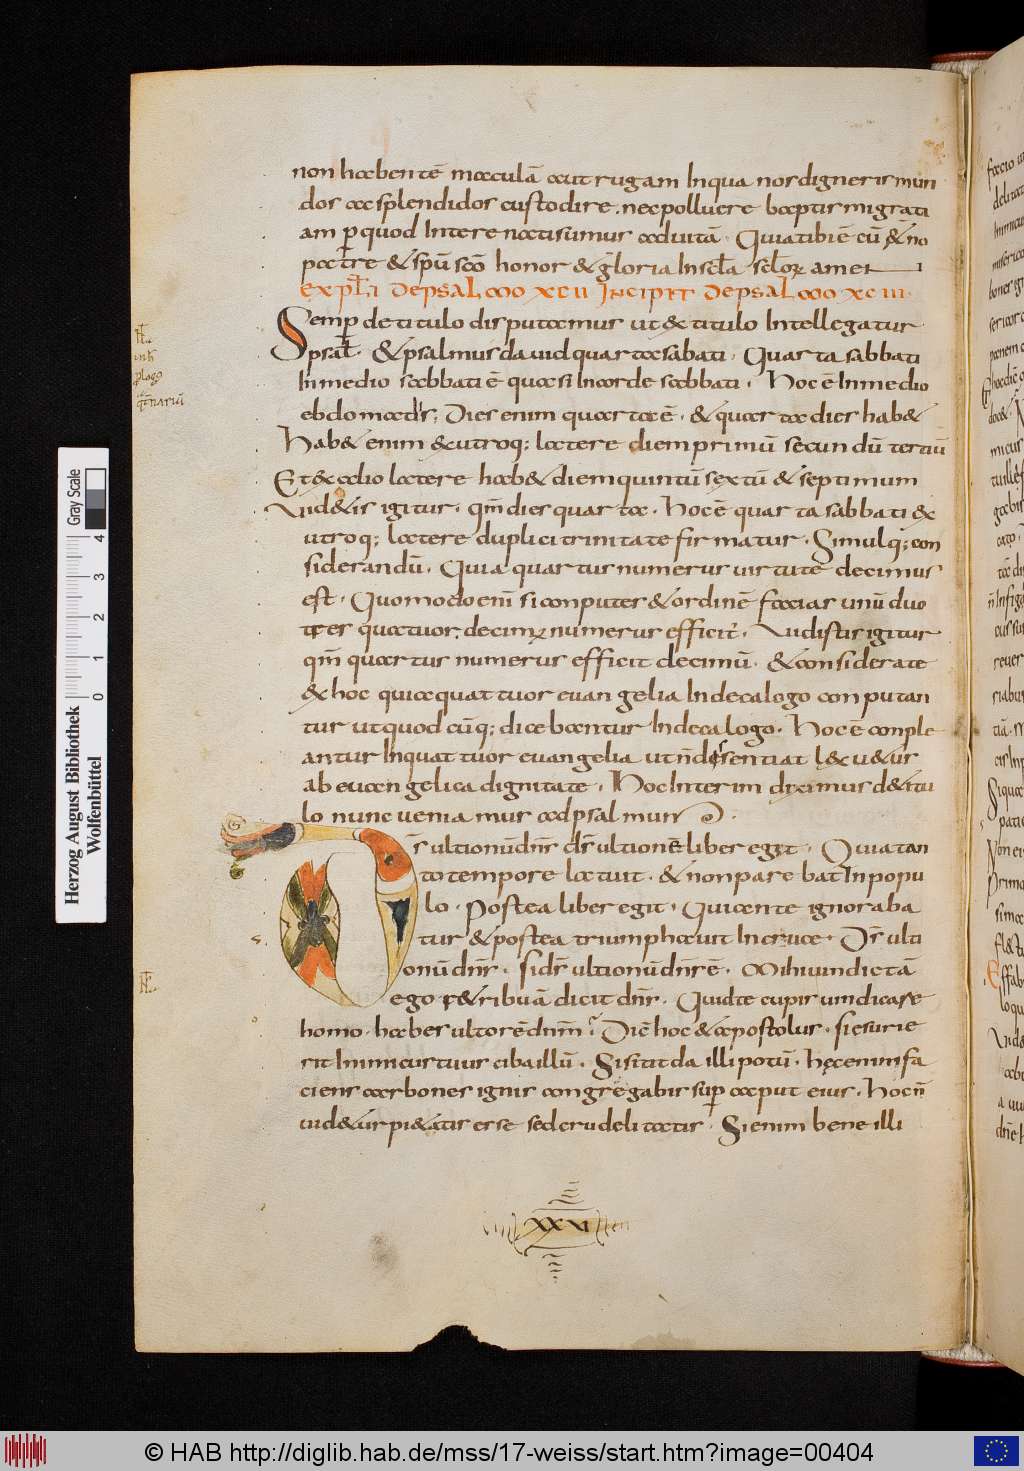 non habentē maculā aut rugam In qua nos digneris mun
dos ac splendidos custodire. nec polluere baptismigrati
am p quod Intere nati sumus ad uitā. Quia tibi ē cū & no
patre & spū scō honor & gloria In scla sclorꝝ amen
expli de psalmo xcii Incipit de psalmo xciii
Semp de titulo disputamus ut ex titulo Intellegatur
psal. & psalmus dauid quarta sabati. Quarta sabbati
In medio sabbati ē quasi In corde sabbati. Hoc ē In medio
ebdomadis; Dies enim quarta ē. & quarta dies hab&
Hab& enim ex utroq; latere diem primū secundū tertiū
Et ex alio latere hab& diem quintū sextū & septimum
Vid&is igitur. qm̄ dies quarta. Hoc ē quarta sabbati ex
utroq; latere duplici trinitate firmatur. Simulq; con
siderandū. Quia quartus numerus uirtute decimus
est. Quomodo enī si computes & ordinē facias unū duo
tres quatuor. decimꝰ numerus efficit. Vidistis igitur
qm̄ quartus numerus efficit decimū. & considerate
& hoc quia quattuor euangelia In decalogo computan
tur ut quodcūq; dicebantur In decalogo. Hoc ē comple
antur In quattuor euangelia ut n̄ dissentiat lex u&us
ab euangelica dignitate. Hoc Interim diximus de titu
lo nunc ueniamus ad psalmum
Ds ultionū dn̄s ds ultionū liber egit. Quia tan
to tempore latuit. & non parebat In popu
lo. Postea liber egit. Qui ante ignoraba
tur & postea triumphauit In cruce. Ds ulti
onū dn̄s. si ds ultionū dn̄s ē. Mihi uindictā
ego r&ribuā dicit dn̄s. Quid te cupis uindicare
homo. habes ultorē dn̄m. Dic̄ hoc & apostolus. si esurie
rit Inimicus tuus ciba illū. Si sitit da illi potū. hęc enim fa
ciens carbones ignis congregabis sup caput eius. Hoc n̄
uid&ur pi&atis esse sed crudelitatis. Si enim bene illi
xxvi
Herzog August Bibliothek
Wolfenbüttel
0 1 2 3 4
Gray Scale
© HAB http://diglib.hab.de/mss/17-weiss/start.htm?image=00404